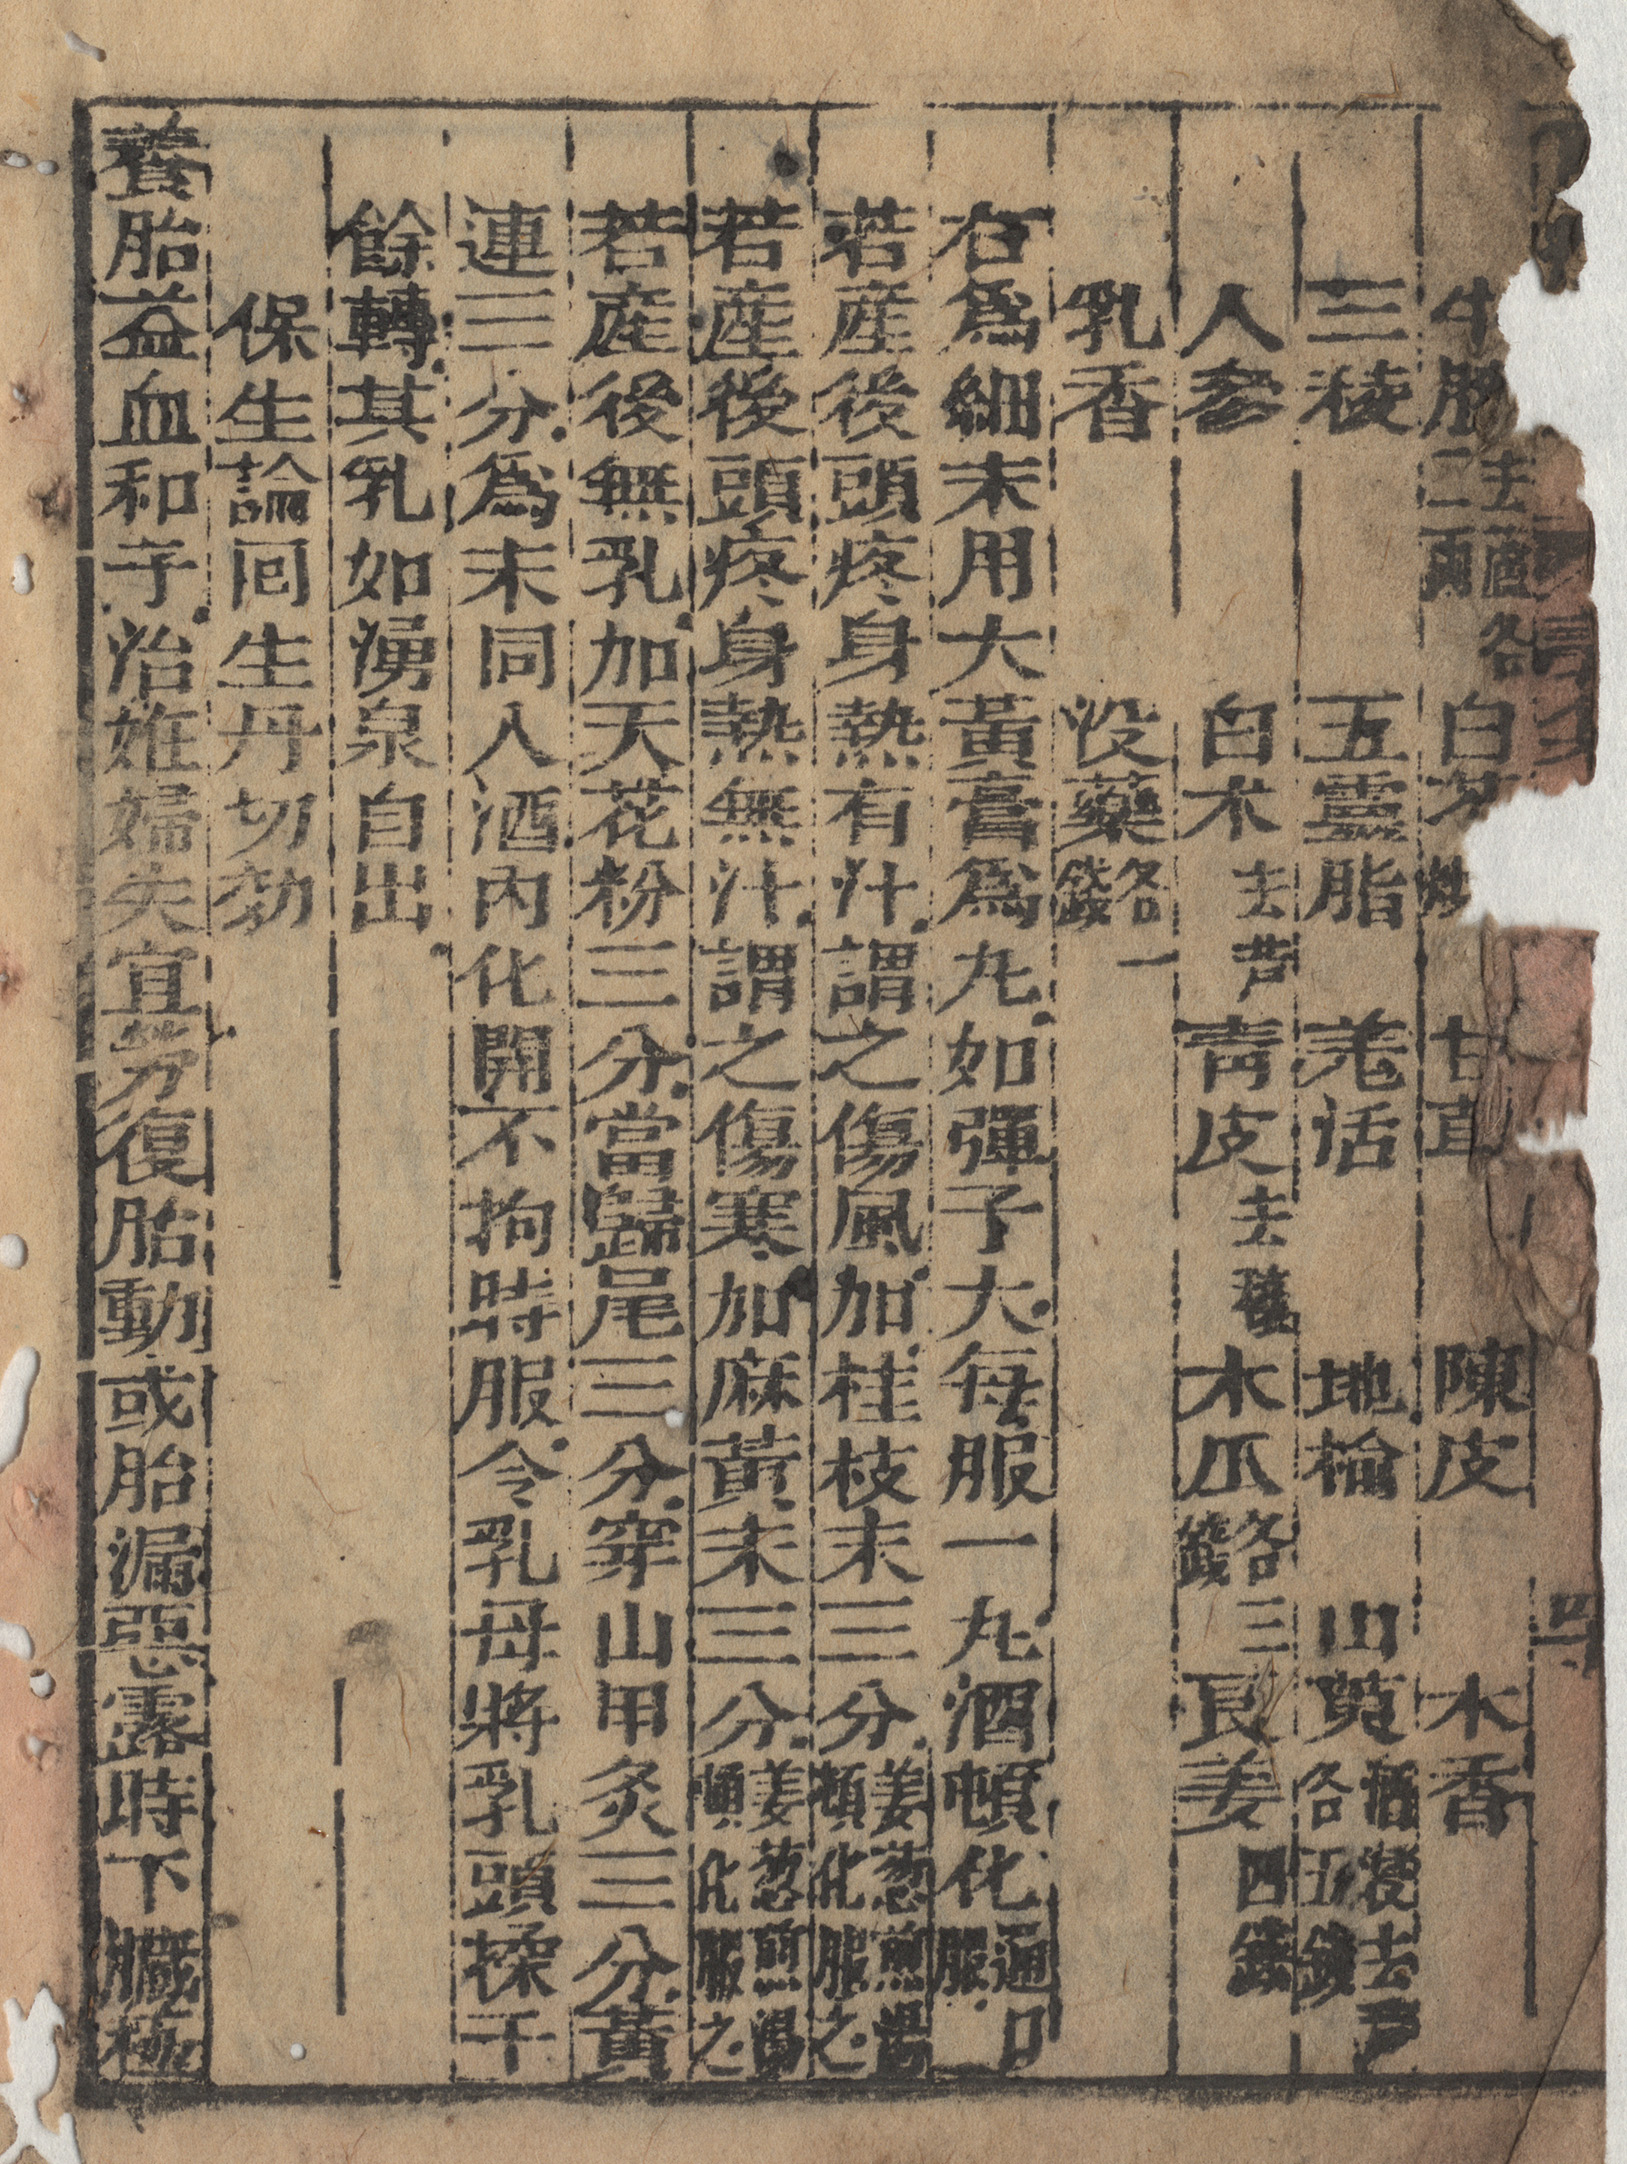 牛膝去蘆各二兩 白芍炒 甘草 陳皮 木香
三稜 五靈脂 羗活 地榆 山萸酒浸去 各五錢
人參 白朮去芦 青皮去穰 木瓜各三錢 良姜四錢
乳香 没藥各一錢
右為細末用大黃膏為丸如彈子大每服一丸酒頓化通口服
若産後頭疼身熱有汁謂之傷風加桂枝末三分姜葱煎湯頓化服之
若産後頭疼身熱無汁謂之傷寒加麻黃末三分姜葱煎湯頓化服之
若産後無乳加天花粉三分當歸尾三分穿山甲炙三分黃
連三分為末同入酒內化開不拘時服令乳母將乳頭揉千
餘轉其乳如湧泉自出
保生論囘生丹切効
養胎益血和子治姙婦失宜劳復胎動或胎漏惡露時下臓極